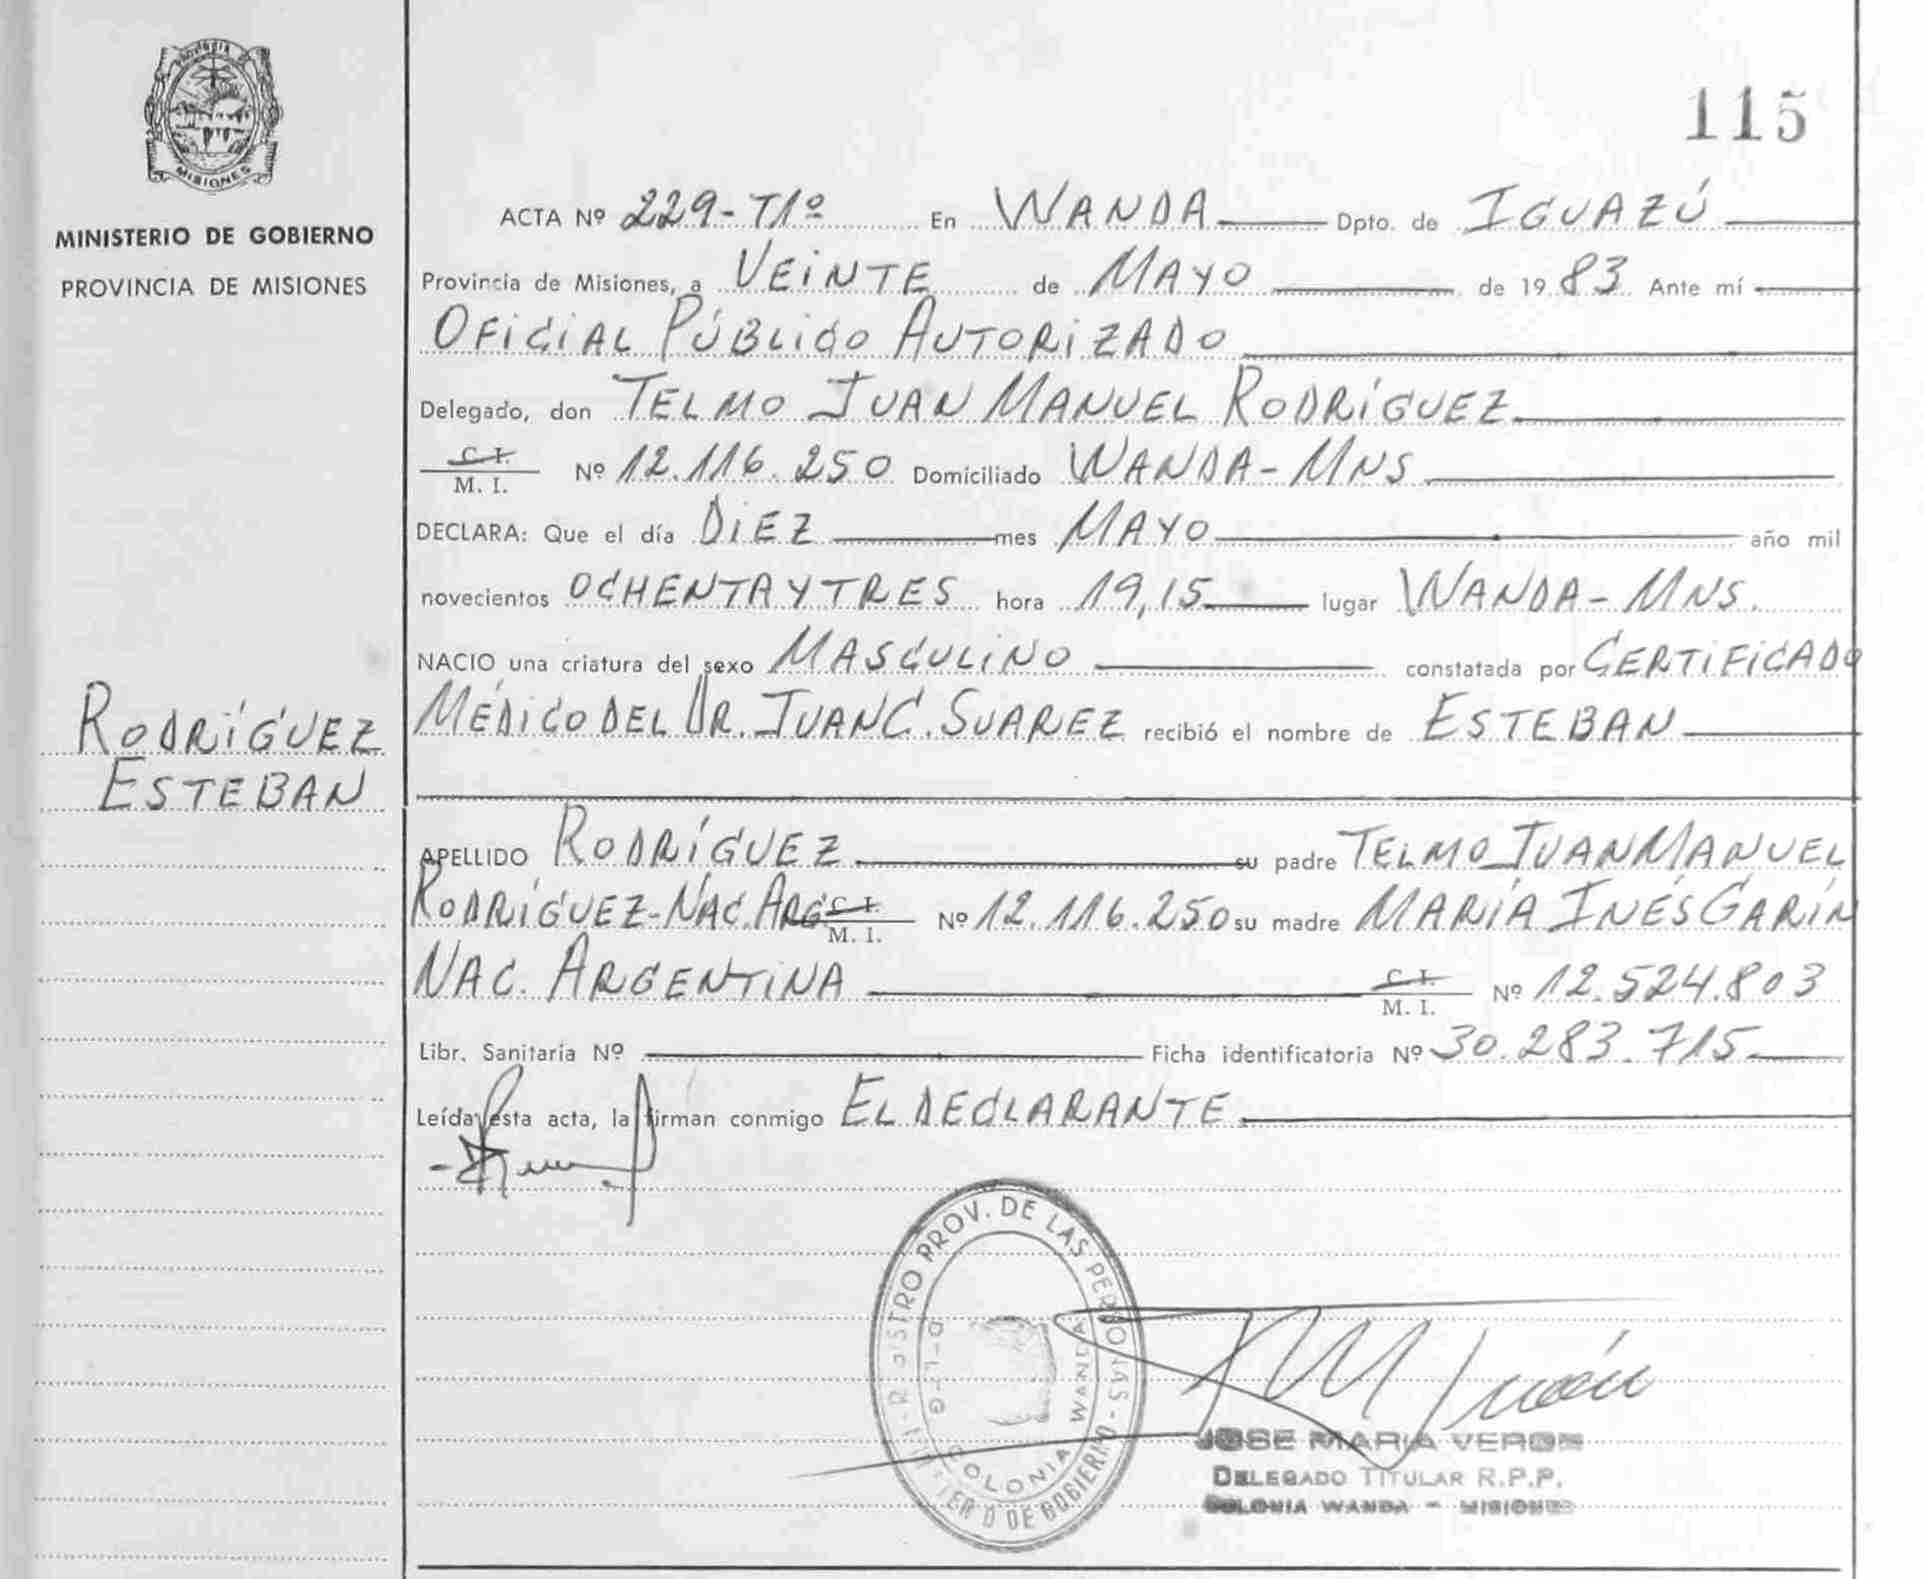 PROVINCIA DE
MISIONES
MINISTERIO DE GOBIERNO
PROVINCIA DE MISIONES
RODRÍGUEZ
ESTEBAN
115
ACTA Nº 229-T1º En WANDA Dpto. de IGUAZÚ
Provincia de Misiones, a VEINTE de MAYO de 1983 Ante mí
OFICIAL PÚBLICO AUTORIZADO
Delegado, don TELMO JUAN MANUEL RODRÍGUEZ
C. I.
M. I. Nº 12.116.250 Domiciliado WANDA-MNS
DECLARA: Que el día DIEZ mes MAYO año mil
novecientos OCHENTA Y TRES hora 19,15 lugar WANDA-MNS.
NACIO una criatura del sexo MASCULINO constatada por CERTIFICADO
MÉDICO DEL DR. JUAN C. SUAREZ recibió el nombre de ESTEBAN
APELLIDO RODRÍGUEZ su padre TELMO JUAN MANUEL
RODRÍGUEZ-NAC. ARG C. I. M. I. Nº 12.116.250 su madre MARÍA INÉS GARÍN
NAC. ARGENTINA C. I. M. I. Nº 12.524.803
Libr. Sanitaria Nº Ficha identificatoria Nº 30.283.715
Leída esta acta, la firman conmigo EL DECLARANTE
REGISTRO PROV. DE LAS PERSONAS - MINISTERIO DE GOBIERNO
DELEG COLONIA WANDA
JOSE MARIA VERON
DELEGADO TITULAR R.P.P.
COLONIA WANDA - MISIONES